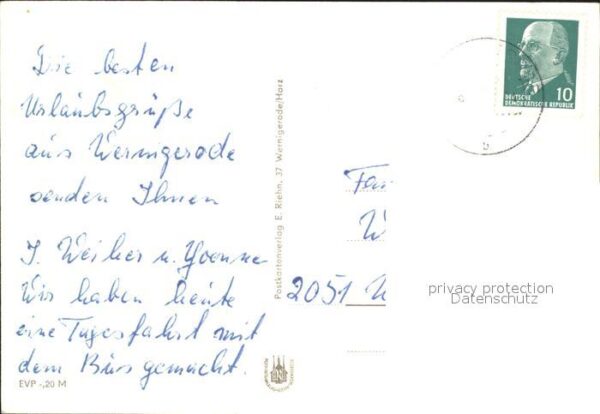 Die besten
Urlaubsgrüße
aus Wernigerode
senden Ihnen
J. Weiher u. Yvonne
Wir haben heute
eine Tagesfahrt mit
dem Bus gemacht.
EVP -,20 M
Postkartenverlag E. Riehn, 37 Wernigerode/Harz
10
DEUTSCHE
DEMOKRATISCHE REPUBLIK
Fam
W
2051
privacy protection
Datenschutz